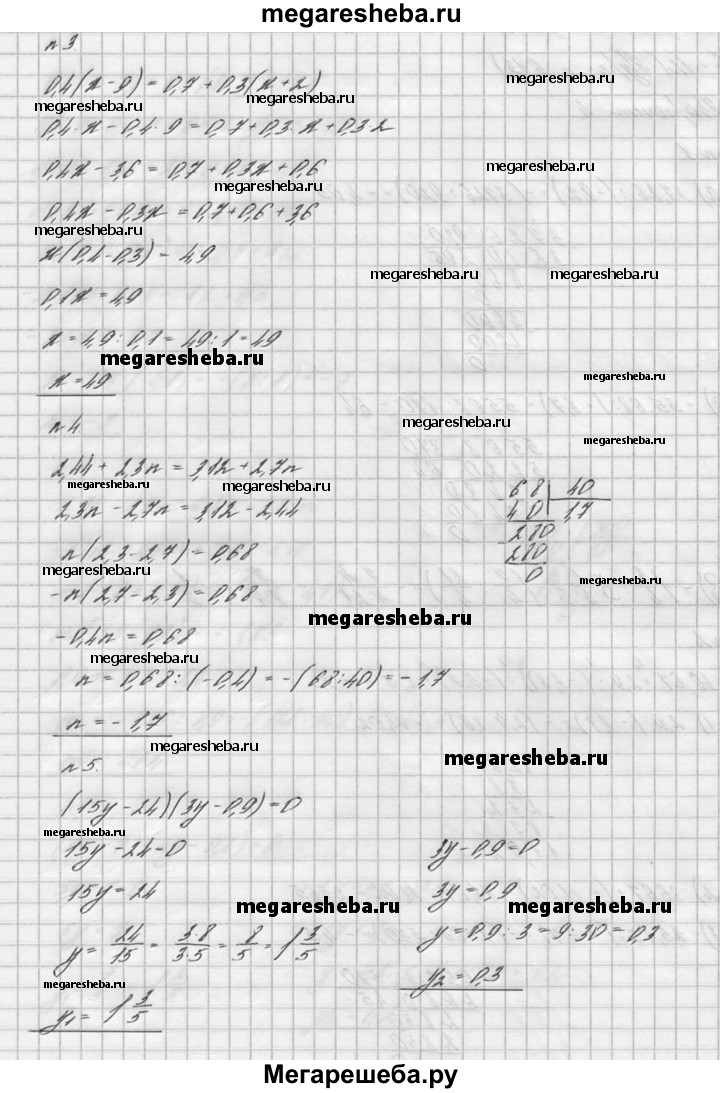 megaresheba.ru
n 3.
0,4(x-9)=0,7+0,3(x+2)
megaresheba.ru
megaresheba.ru
megaresheba.ru
0,4·x-0,4·9=0,7+0,3·x+0,3·2
0,4x-3,6=0,7+0,3x+0,6
megaresheba.ru
megaresheba.ru
0,4x-0,3x=0,7+0,6+3,6
megaresheba.ru
x(0,4-0,3)=4,9
megaresheba.ru
megaresheba.ru
0,1x=4,9
x=4,9:0,1=49:1=49
megaresheba.ru
x=49
megaresheba.ru
n 4.
megaresheba.ru
megaresheba.ru
2,44+2,3n=3,12+2,7n
megaresheba.ru
megaresheba.ru
2,3n-2,7n=3,12-2,44
n(2,3-2,7)=0,68
megaresheba.ru
-n(2,7-2,3)=0,68
-0,4n=0,68
megaresheba.ru
n=0,68:(-0,4)=-(68:40)=-1,7
n=-1,7
68 40
40 1,7
280
280
0
megaresheba.ru
megaresheba.ru
megaresheba.ru
megaresheba.ru
n 5.
(15y-24)(3y-0,9)=0
megaresheba.ru
15y-24=0
15y=24
megaresheba.ru
y=24/15=3·8/3·5=8/5=1 3/5
megaresheba.ru
y1=1 3/5
3y-0,9=0
3y=0,9
megaresheba.ru
y=0,9:3=9:30=0,3
y2=0,3
Мегарешеба.ру